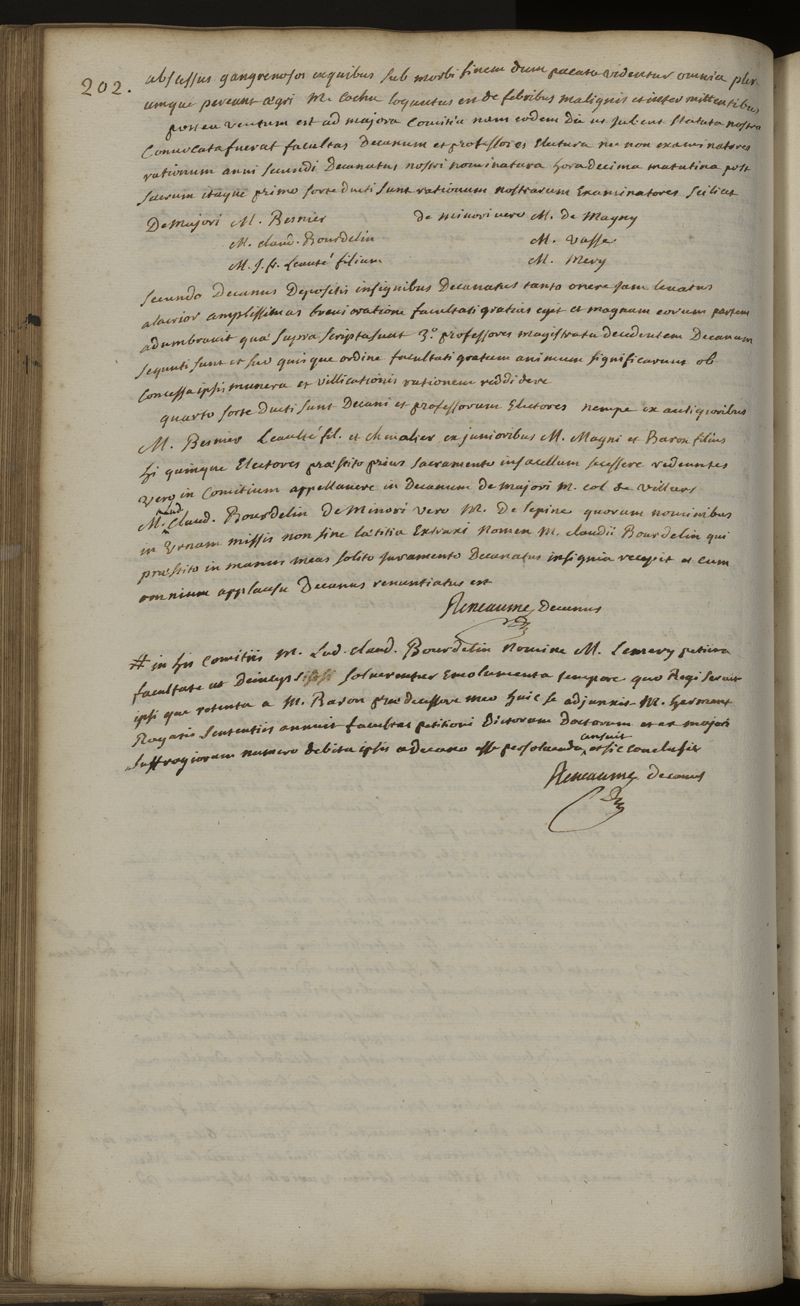 202.
abscessus gangrenosos exquibus sub morbi finem dum pacata videntur omnia pler
umque pereunt ægri M. Cochu loquutus en de febribus malignis et intermittentibus
postea ventum est ad majora Comitia nam eodem die ut jubent statuta nostra
Convocata fuerat facultas Decanum et professores Electura nec non examinatores
rationum anni secundi Decanatus nostri nominatura hora decima matutina post
sacrum itaque primo sorte ducti sunt rationum nostrarum Examinatores scilicet
De Majori M. Besnier de minori vero M. de Magny
M. Claud. Bourdelin M. Vasse
M. J. fr. Leauté filium M. Mery
secundo Decanus Depositis insignibus Decanatus tanto onere jam levatus
alacrior amplissimas brevi oratione facultati gratias egit et magnam eorum partem
adumbravit quæ supra scripta sunt 3.° professores magistratu decedentem Decanum
sequuti sunt et suo quisque ordine facultati gratum animum significarunt ob
Concessa ipsis munera et villicationis rationem reddidere
quarto sorte ducti sunt Decani et professorum Electores nempe ex antiquioribus
M. Besnier Leaulté fil. et chevalier ex junioribus M. Magni et Baron filius
hi quinque Electores præstito prius sacramento in sacellum secessere redeuntes
vero in Comitium appellavere in Decanum de majori M. col de Villars
M. Claud. Bourdelin De Minori vero M. De lepine quorum nominibus
in Urnam missis non sine lætitia Extraxi Nomen M. Claudii Bourdelin qui
præstito in manus meas solito juramento Decanatus insignia recepit et cum
omnium applausu Decanus renuntiatus est
Reneaume Decanus
# in his Comitiis M. Lud. Claud. Bourdelin Nomine M. Lemery petiera
facultate ut Deinceps solverentur Emolumenta tempore quo Regi servit
ipsi que retenta a M. Baron prædecessore meo huic se adjunxit M. herment
Rogatis sententiis annuit facultas petitioni Dictorum doctorum et ex majori
suffragiorum numero debita ipsis a Decano esse persolvenda censuit et sic conclusit
Reneaume Decanus